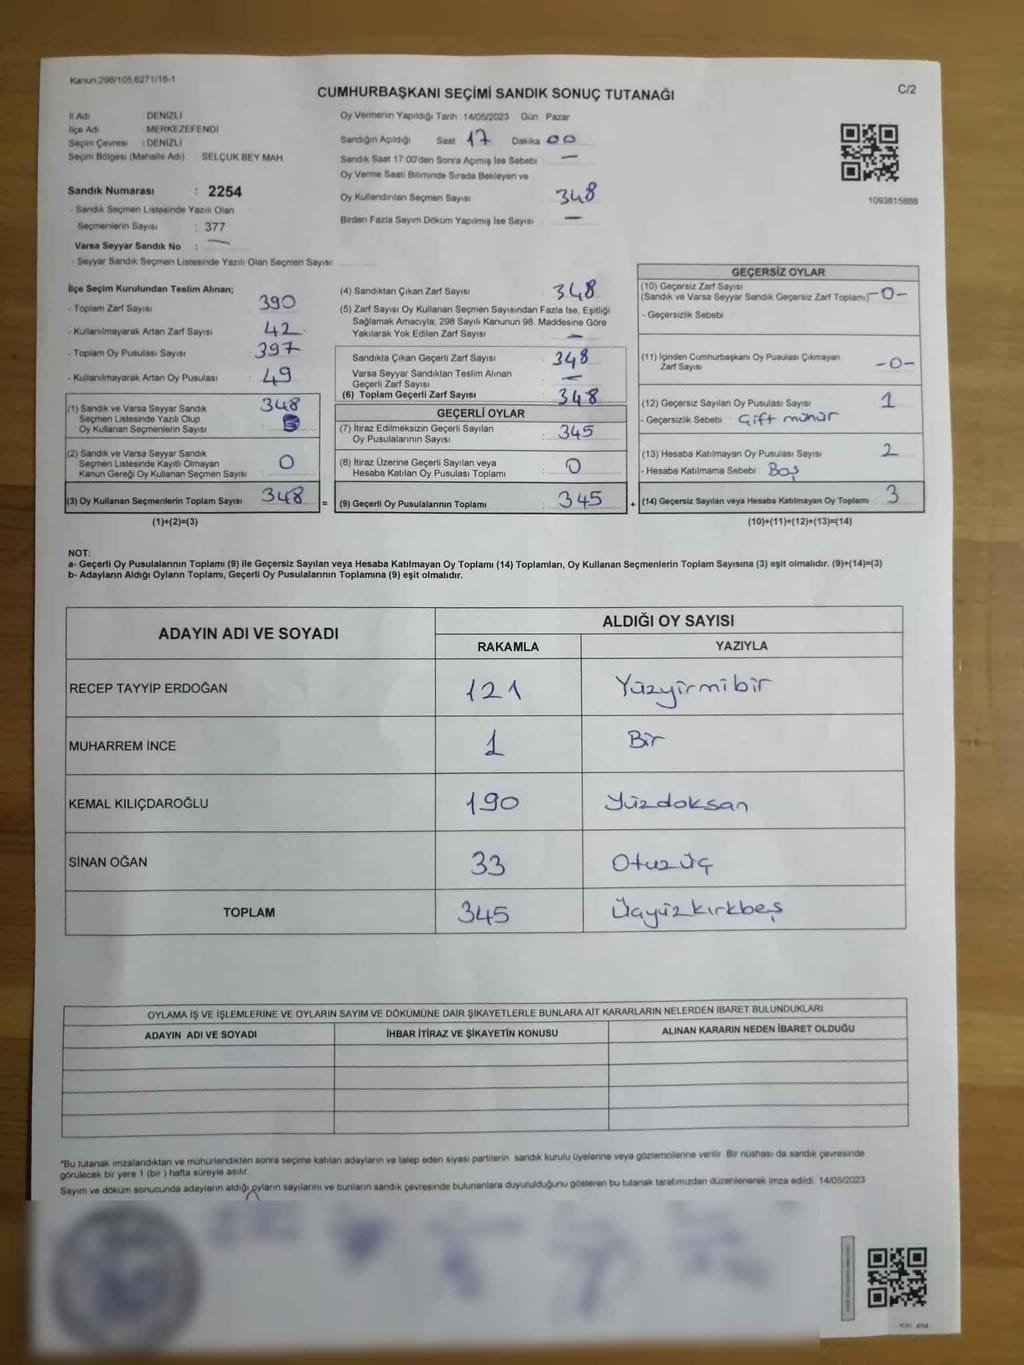 Kanun 298/105,6271/18-1
C/2
CUMHURBAŞKANI SEÇİMİ SANDIK SONUÇ TUTANAĞI
İl Adı : DENİZLİ
İlçe Adı : MERKEZEFENDİ
Seçim Çevresi : DENİZLİ
Seçim Bölgesi (Mahalle Adı) SELÇUK BEY MAH
Sandık Numarası : 2254
- Sandık Seçmen Listesinde Yazılı Olan
Seçmenlerin Sayısı : 377
Varsa Seyyar Sandık No : —
- Seyyar Sandık Seçmen Listesinde Yazılı Olan Seçmen Sayısı:
Oy Vermenin Yapıldığı Tarih 14/05/2023 Gün Pazar
Sandığın Açıldığı Saat 17 Dakika 00
Sandık Saat 17:00'den Sonra Açımış İse Sebebi : —
Oy Verme Saati Bitiminde Sırada Bekleyen ve
Oy Kullandırılan Seçmen Sayısı : 348
Birden Fazla Sayım Döküm Yapılmış İse Sayısı : —
1093815886
İlçe Seçim Kurulundan Teslim Alınan;
- Toplam Zarf Sayısı : 390
- Kullanılmayarak Artan Zarf Sayısı : 42
- Toplam Oy Pusulası Sayısı : 397
- Kullanılmayarak Artan Oy Pusulası : 49
(1) Sandık ve Varsa Seyyar Sandık 348
Seçmen Listesinde Yazılı Olup
Oy Kullanan Seçmenlerin Sayısı
(2) Sandık ve Varsa Seyyar Sandık
Seçmen Listesinde Kayıtlı Olmayan 0
Kanun Gereği Oy Kullanan Seçmen Sayısı
(3) Oy Kullanan Seçmenlerin Toplam Sayısı 348
(1)+(2)=(3)
(4) Sandıktan Çıkan Zarf Sayısı : 348
(5) Zarf Sayısı Oy Kullanan Seçmen Sayısından Fazla İse, Eşitliği
Sağlamak Amacıyla, 298 Sayılı Kanunun 98. Maddesine Göre
Yakılarak Yok Edilen Zarf Sayısı : —
Sandıkta Çıkan Geçerli Zarf Sayısı : 348
Varsa Seyyar Sandıktan Teslim Alınan
Geçerli Zarf Sayısı : —
(6) Toplam Geçerli Zarf Sayısı : 348
GEÇERLİ OYLAR
(7) İtiraz Edilmeksizin Geçerli Sayılan
Oy Pusulalarının Sayısı : 345
(8) İtiraz Üzerine Geçerli Sayılan veya
Hesaba Katılan Oy Pusulası Toplamı : 0
= (9) Geçerli Oy Pusulalarının Toplamı : 345
GEÇERSİZ OYLAR
(10) Geçersiz Zarf Sayısı
(Sandık ve Varsa Seyyar Sandık Geçersiz Zarf Toplamı) -0-
- Geçersizlik Sebebi :
(11) İçinden Cumhurbaşkanı Oy Pusulası Çıkmayan
Zarf Sayısı : -0-
(12) Geçersiz Sayılan Oy Pusulası Sayısı : 1
- Geçersizlik Sebebi : Çift mühür
(13) Hesaba Katılmayan Oy Pusulası Sayısı : 2
- Hesaba Katılmama Sebebi : Boş
+ (14) Geçersiz Sayılan veya Hesaba Katılmayan Oy Toplamı : 3
(10)+(11)+(12)+(13)=(14)
NOT:
a- Geçerli Oy Pusulalarının Toplamı (9) ile Geçersiz Sayılan veya Hesaba Katılmayan Oy Toplamı (14) Toplamları, Oy Kullanan Seçmenlerin Toplam Sayısına (3) eşit olmalıdır. (9)+(14)=(3)
b- Adayların Aldığı Oyların Toplamı, Geçerli Oy Pusulalarının Toplamına (9) eşit olmalıdır.
ADAYIN ADI VE SOYADI
ALDIĞI OY SAYISI
RAKAMLA YAZIYLA
RECEP TAYYİP ERDOĞAN 121 Yüzyirmibir
MUHARREM İNCE 1 Bir
KEMAL KILIÇDAROĞLU 190 Yüzdoksan
SİNAN OĞAN 33 Otuzüç
TOPLAM 345 Üçyüzkırkbeş
OYLAMA İŞ VE İŞLEMLERİNE VE OYLARIN SAYIM VE DÖKÜMÜNE DAİR ŞİKAYETLERLE BUNLARA AİT KARARLARIN NELERDEN İBARET BULUNDUKLARI
ADAYIN ADI VE SOYADI İHBAR İTİRAZ VE ŞİKAYETİN KONUSU ALINAN KARARIN NEDEN İBARET OLDUĞU
*Bu tutanak imzalandıktan ve mühürlendikten sonra seçime katılan adayların ve talep eden siyasi partilerin sandık kurulu üyelerine veya gözlemcilerine verilir. Bir nüshası da sandık çevresinde
görülecek bir yere 1 (bir ) hafta süreyle asılır.
Sayım ve döküm sonucunda adayların aldığı oyların sayılarını ve bunların sandık çevresinde bulunanlara duyurulduğunu gösteren bu tutanak tarafımızdan düzenlenerek imza edildi 14/05/2023